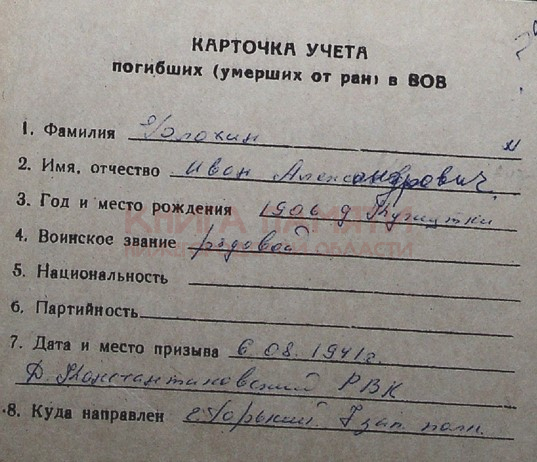 КАРТОЧКА УЧЕТА
погибших (умерших от ран) в ВОВ
1. Фамилия Голохин
2. Имя, отчество Иван Александрович
3. Год и место рождения 1906 д
4. Воинское звание рядовой
КНИГА ПАМЯТИ
НИЖЕГОРОДСКОЙ ОБЛАСТИ
5. Национальность
6. Партийность
7. Дата и место призыва 6.08.1941г.
Д. Константиновский РВК
8. Куда направлен г. Горький. 7 зап. полк.